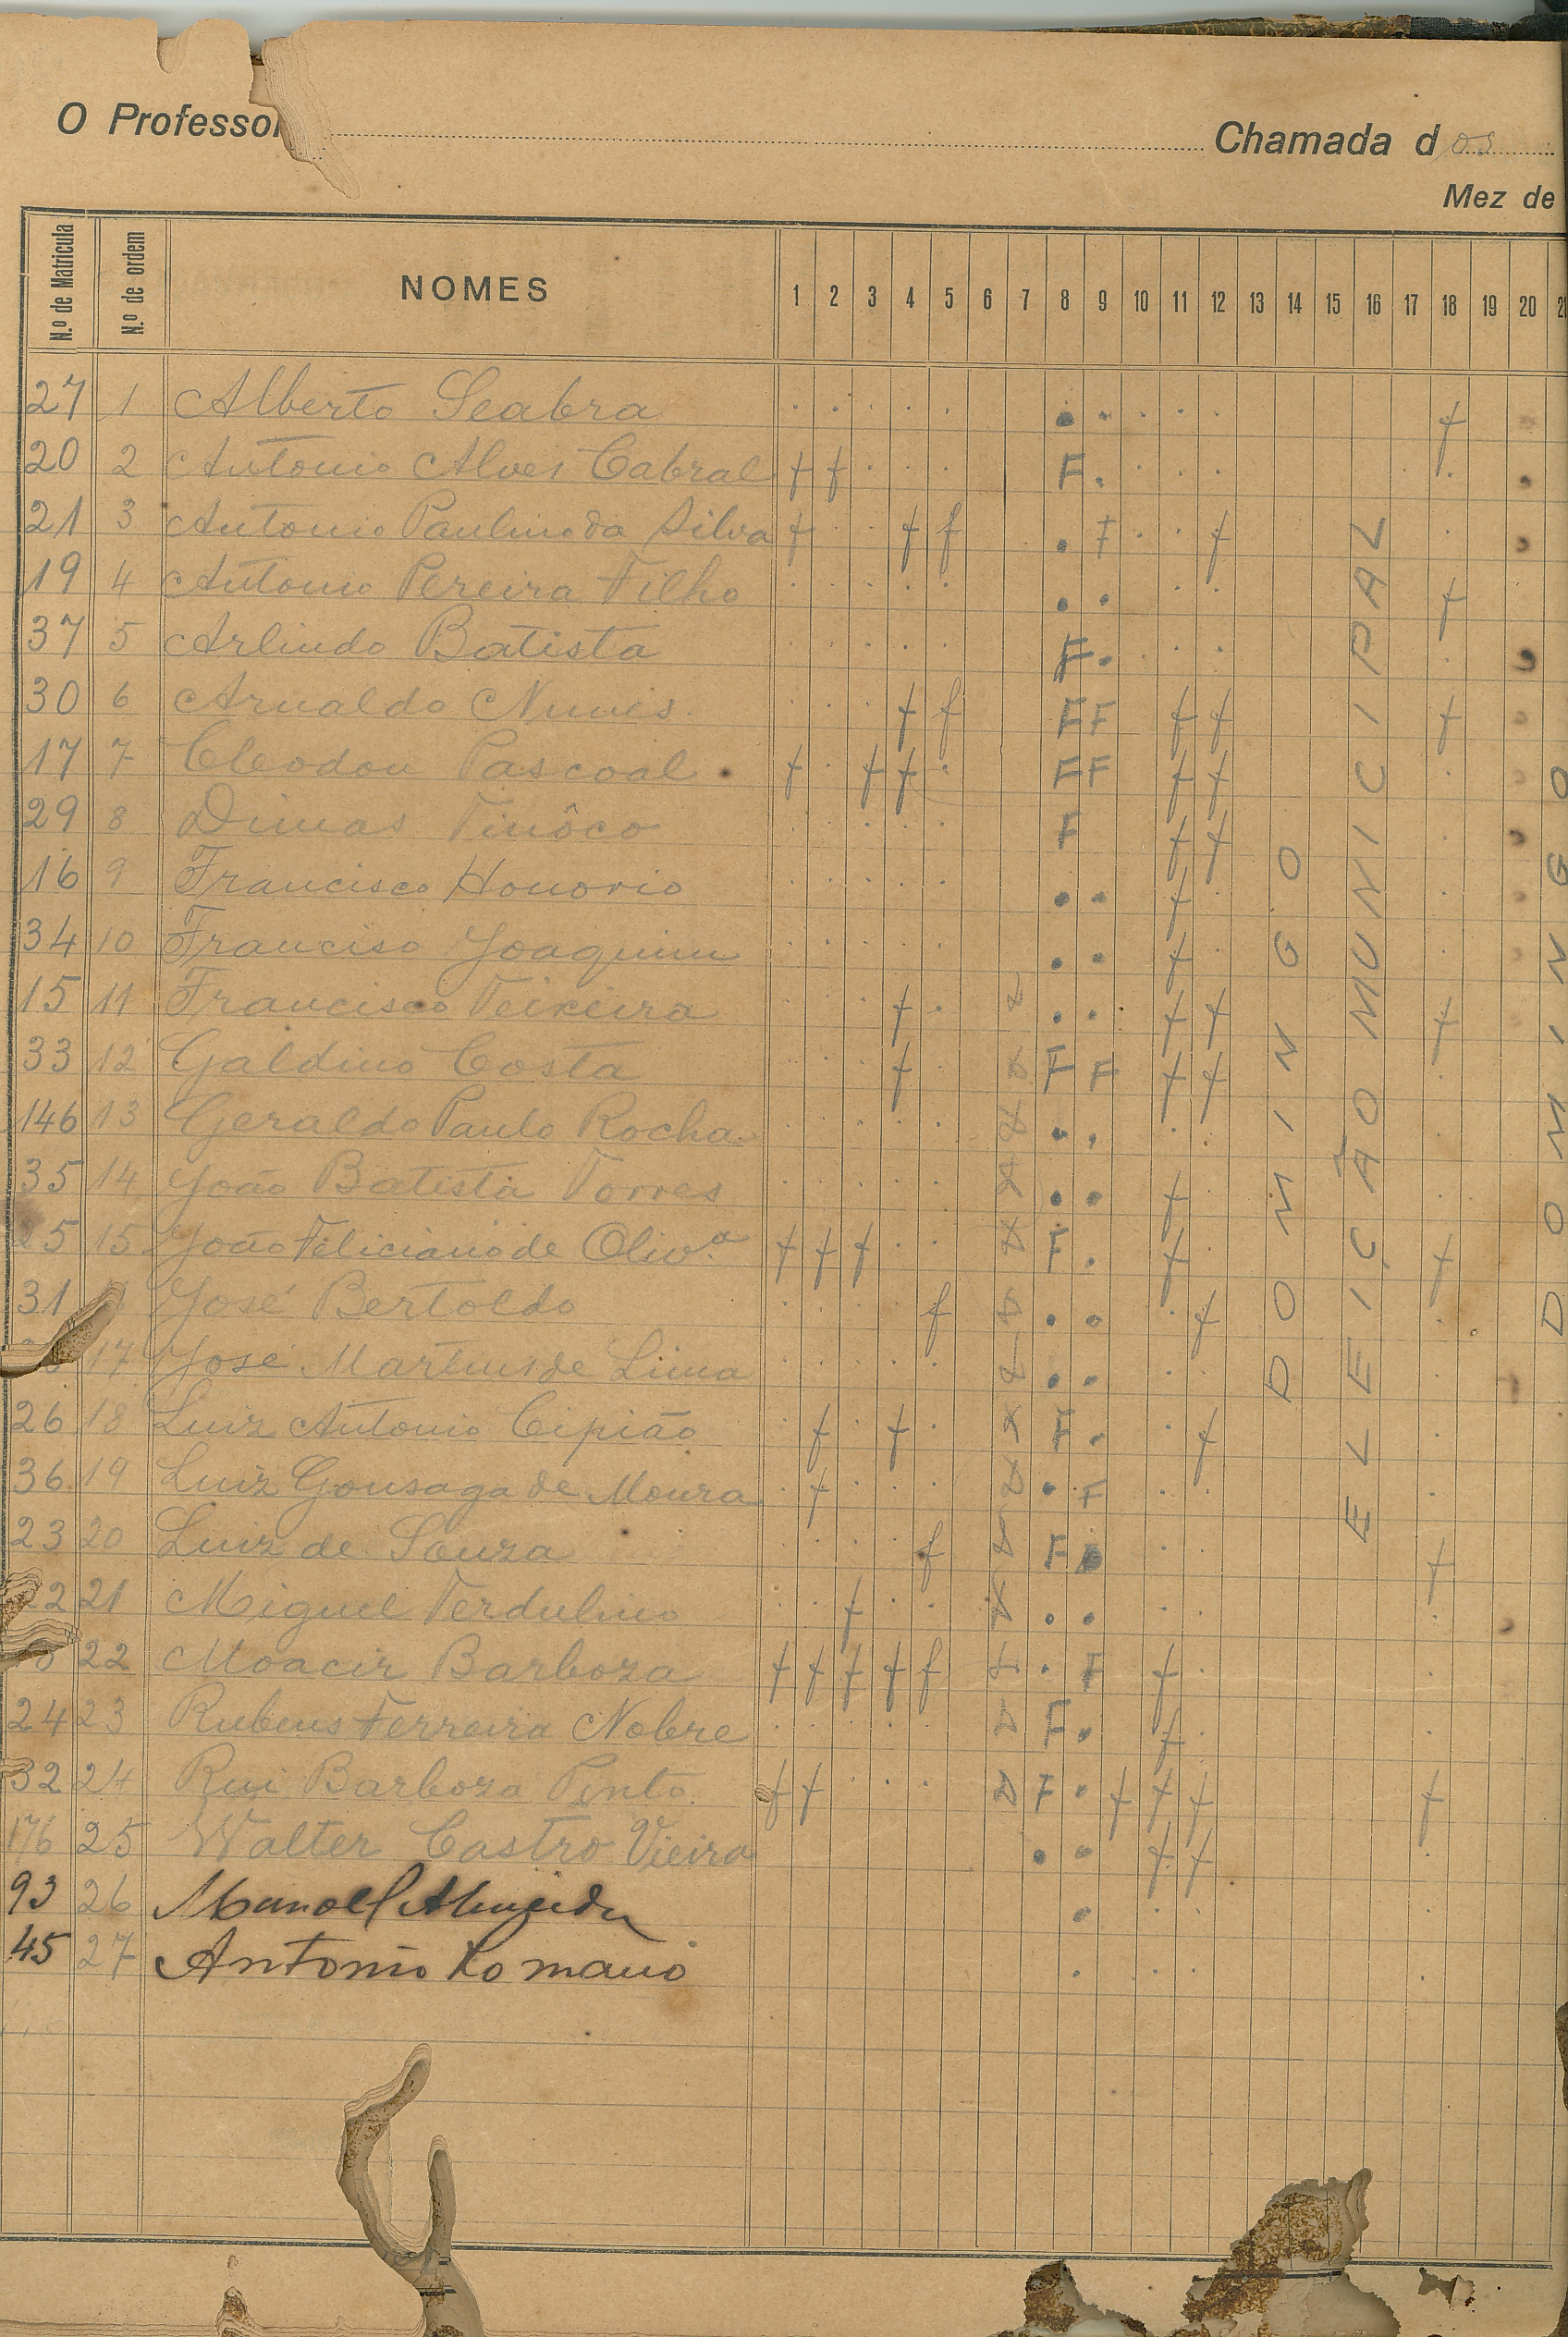 O Professor Chamada dos
Mez de
N.º de Matricula N.º de ordem NOMES 1 2 3 4 5 6 7 8 9 10 11 12 13 14 15 16 17 18 19 20
27 1 Alberto Seabra . . . . . . . . . . f
20 2 Antonio Alves Cabral f f . . . F . . . . .
21 3 Antonio Paulino da Silva f . . f f . F . . f .
19 4 Antonio Pereira Filho . . . . . . . . f
37 5 Arlindo Batista . . . . . F . . . . .
30 6 Arnaldo Nunes . . . f f F F f f f
17 7 Cleodon Pascoal f . f f . F F f f .
29 8 Dimas Tinôco . . . . . F f f .
16 9 Francisco Honorio . . . . . . . f .
34 10 Franciso Joaquim . . . . . . . f . .
15 11 Francisco Teixeira . . . f . . . . f f f
33 12 Galdino Costa . . . f . D F F f f .
146 13 Geraldo Paulo Rocha . . . . . . . . . .
35 14 João Batista Torres . . . . . . . f . .
25 15 João Feliciano de Olivª f f f . . F . f . f
31 José Bertoldo . . . . f . . . f .
17 José Martins de Lima . . . . . . . . . .
26 18 Luiz Antonio Cipião . f . f . F . . f .
36 19 Luiz Gonsaga de Moura . f . . . D . F . . .
23 20 Luiz de Souza . . . . f F . . f
22 21 Miguel Terdulino . . f . . . . . . .
22 Moacir Barboza f f f f f . F f . .
24 23 Rubens Ferreira Nobre . . . . . D F . f . .
32 24 Rui Barboza Pinto f f . . . D F . f f f f
176 25 Walter Castro Vieira . . f f .
93 26 Manoel Almeida . . . .
45 27 Antonio Romano . . . .
DOMINGO
ELEIÇÃO MUNICIPAL
DOMINGO